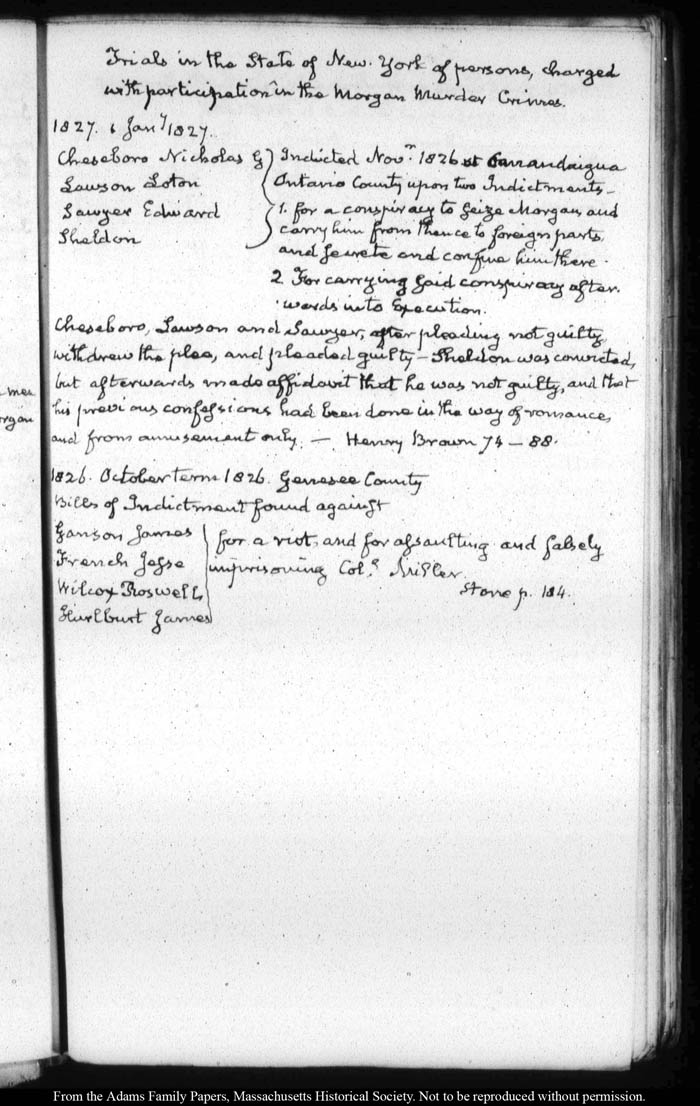 Trials in the State of New-York of persons, charged
with participation in the Morgan Murder Crimes.
1827. 6 Jany 1827.
Cheseboro Nicholas G Indicted Novr. 1826 at Canandaigua
Lawson Loton Ontario County upon two Indictments—
Sawyer Edward 1. for a conspiracy to seize Morgan, and
Sheldon carry him from thence to foreign parts,
and secrete and confine him there.
2 For carrying said conspiracy after-
wards into Execution.
Cheseboro, Lawson and Sawyer, after pleading not guilty,
withdrew the plea, and pleaded guilty — Sheldon was convicted,
but afterwards made affidavit that he was not guilty, and that
his previous confessions had been done in the way of romance,
and from amusement only. — Henry Brown 74–88.
1826. October term 1826. Genesee County
Bills of Indictment found against
Ganson James for a riot, and for assaulting and falsely
French Jesse imprisoning Col. Miller.
Wilcox Roswell Stone p. 184.
Hurlburt James
mes
rgan
From the Adams Family Papers, Massachusetts Historical Society. Not to be reproduced without permission.